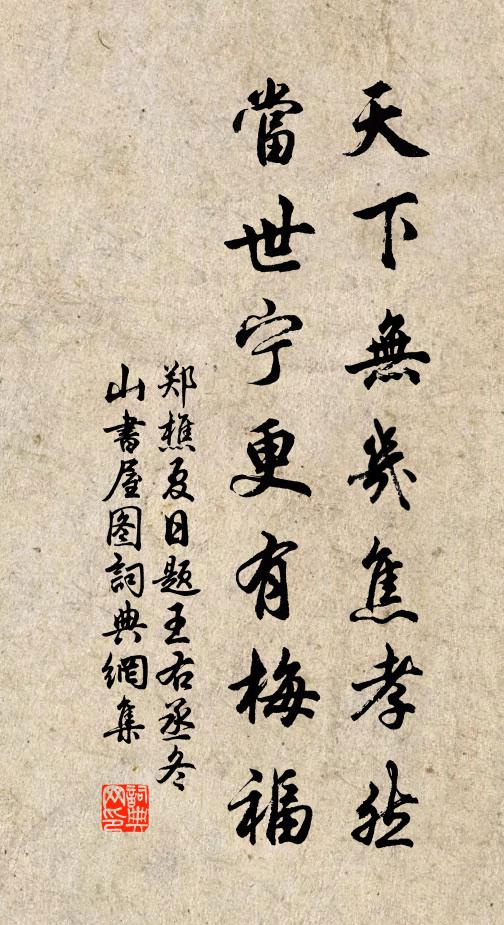 天下無幾焦孝然
當世宁更有梅福
郑樵夏日题王右丞冬
山書屋图詞典網集
詞典网印